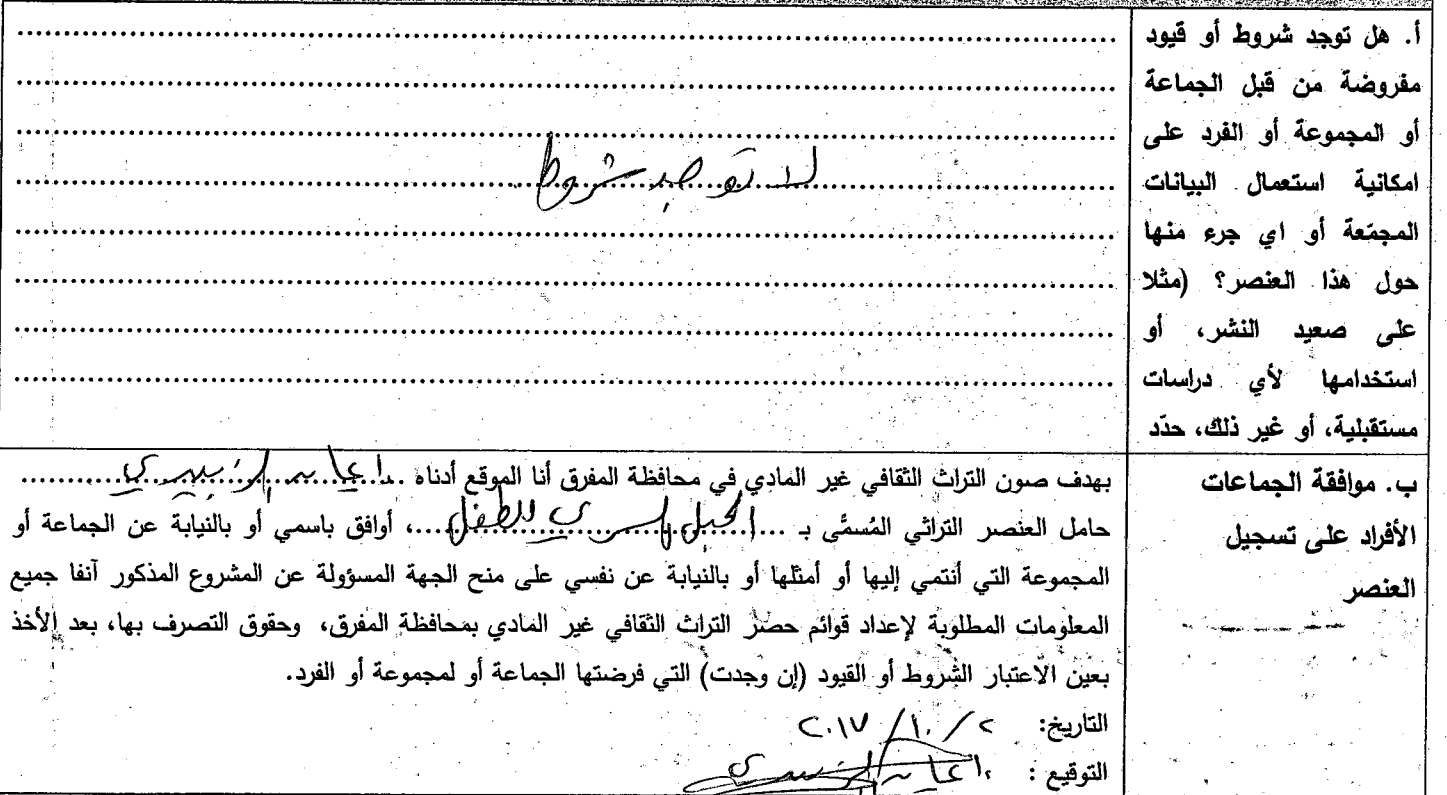 أ. هل توجد شروط أو قيود
مفروضة من قبل الجماعة
أو المجموعة أو الفرد على
امكانية استعمال البيانات
المجمّعة أو اي جرء منها
حول هذا العنصر؟ (مثلا
على صعيد النشر، أو
استخدامها لأي دراسات
مستقبلية، أو غير ذلك، حدّد
لا توجد شروط
ب. موافقة الجماعات
الأفراد على تسجيل
العنصر
بهدف صون التراث الثقافي غير المادي في محافظة المفرق أنا الموقع أدناه
حامل العنصر التراثي المُسمَّى بـ ... الحبل السري للطفل ...، أوافق باسمي أو بالنيابة عن الجماعة أو
المجموعة التي أنتمي إليها أو أمثلها أو بالنيابة عن نفسي على منح الجهة المسؤولة عن المشروع المذكور آنفا جميع
المعلومات المطلوبة لإعداد قوائم حصر التراث الثقافي غير المادي بمحافظة المفرق، وحقوق التصرف بها، بعد الأخذ
بعين الاعتبار الشروط أو القيود (إن وجدت) التي فرضتها الجماعة أو لمجموعة أو الفرد.
التاريخ: ٢ / ١٠ / ٢٠١٧
التوقيع :